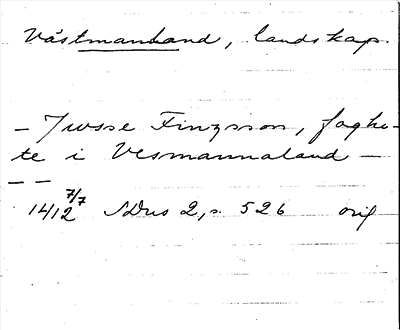 Västmanland, landskap.
– Jwsse Finzsson, foghu-
te i Vesmannaland –
– –
1412 7/7 SDns 2, s. 526 orig